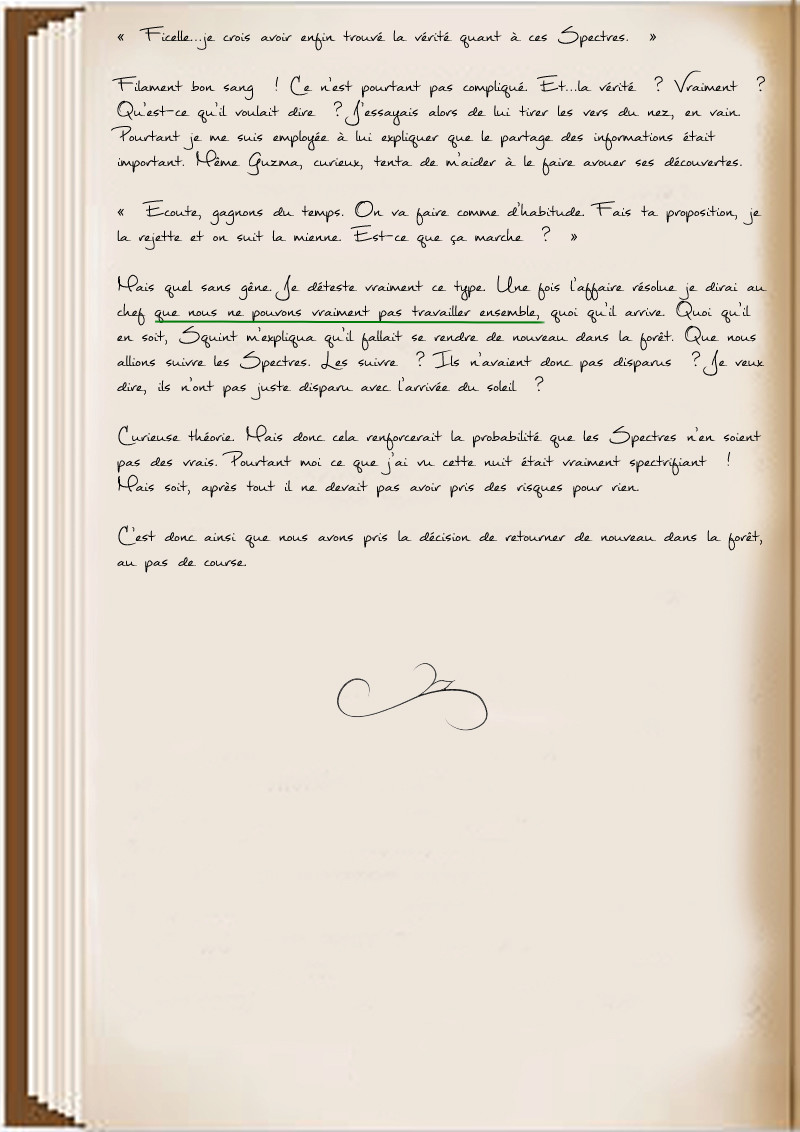 « Ficelle...je crois avoir enfin trouvé la vérité quant à ces Spectres. »
Filament bon sang ! Ce n'est pourtant pas compliqué. Et...la vérité ? Vraiment ?
Qu'est-ce qu'il voulait dire ? J'essayais alors de lui tirer les vers du nez, en vain.
Pourtant je me suis employée à lui expliquer que le partage des informations était
important. Même Guzma, curieux, tenta de m'aider à le faire avouer ses découvertes.
« Ecoute, gagnons du temps. On va faire comme d'habitude. Fais ta proposition, je
la rejette et on suit la mienne. Est-ce que ça marche ? »
Mais quel sans gêne. Je déteste vraiment ce type. Une fois l'affaire résolue je dirai au
chef que nous ne pouvons vraiment pas travailler ensemble, quoi qu'il arrive. Quoi qu'il
en soit, Squint m'expliqua qu'il fallait se rendre de nouveau dans la forêt. Que nous
allions suivre les Spectres. Les suivre ? Ils n'avaient donc pas disparus ? Je veux
dire, ils n'ont pas juste disparu avec l'arrivée du soleil ?
Curieuse théorie. Mais donc cela renforcerait la probabilité que les Spectres n'en soient
pas des vrais. Pourtant moi ce que j'ai vu cette nuit était vraiment spectrifiant !
Mais soit, après tout il ne devait pas avoir pris des risques pour rien.
C'est donc ainsi que nous avons pris la décision de retourner de nouveau dans la forêt,
au pas de course.